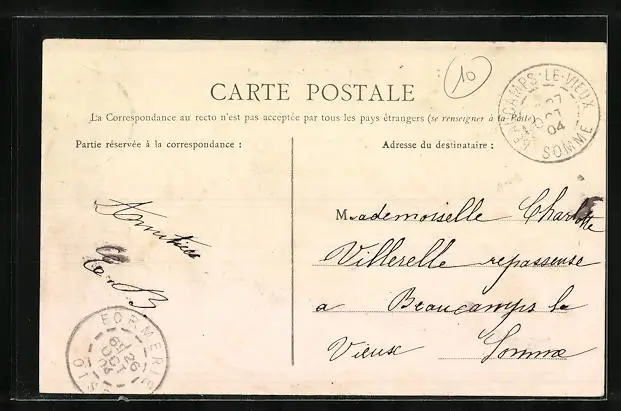 CARTE POSTALE
La Correspondance au recto n'est pas acceptée par tous les pays étrangers (se renseigner à la Poste)
Partie réservée à la correspondance :
Adresse du destinataire :
10
BEAUCAMPS-LE-VIEUX
27
OCT
04
SOMME
Mademoiselle Charlotte
Villerelle repasseuse
a Beaucamps le
Vieux Somme
Amitiés
FORMERIE
26
OCT
04
OISE